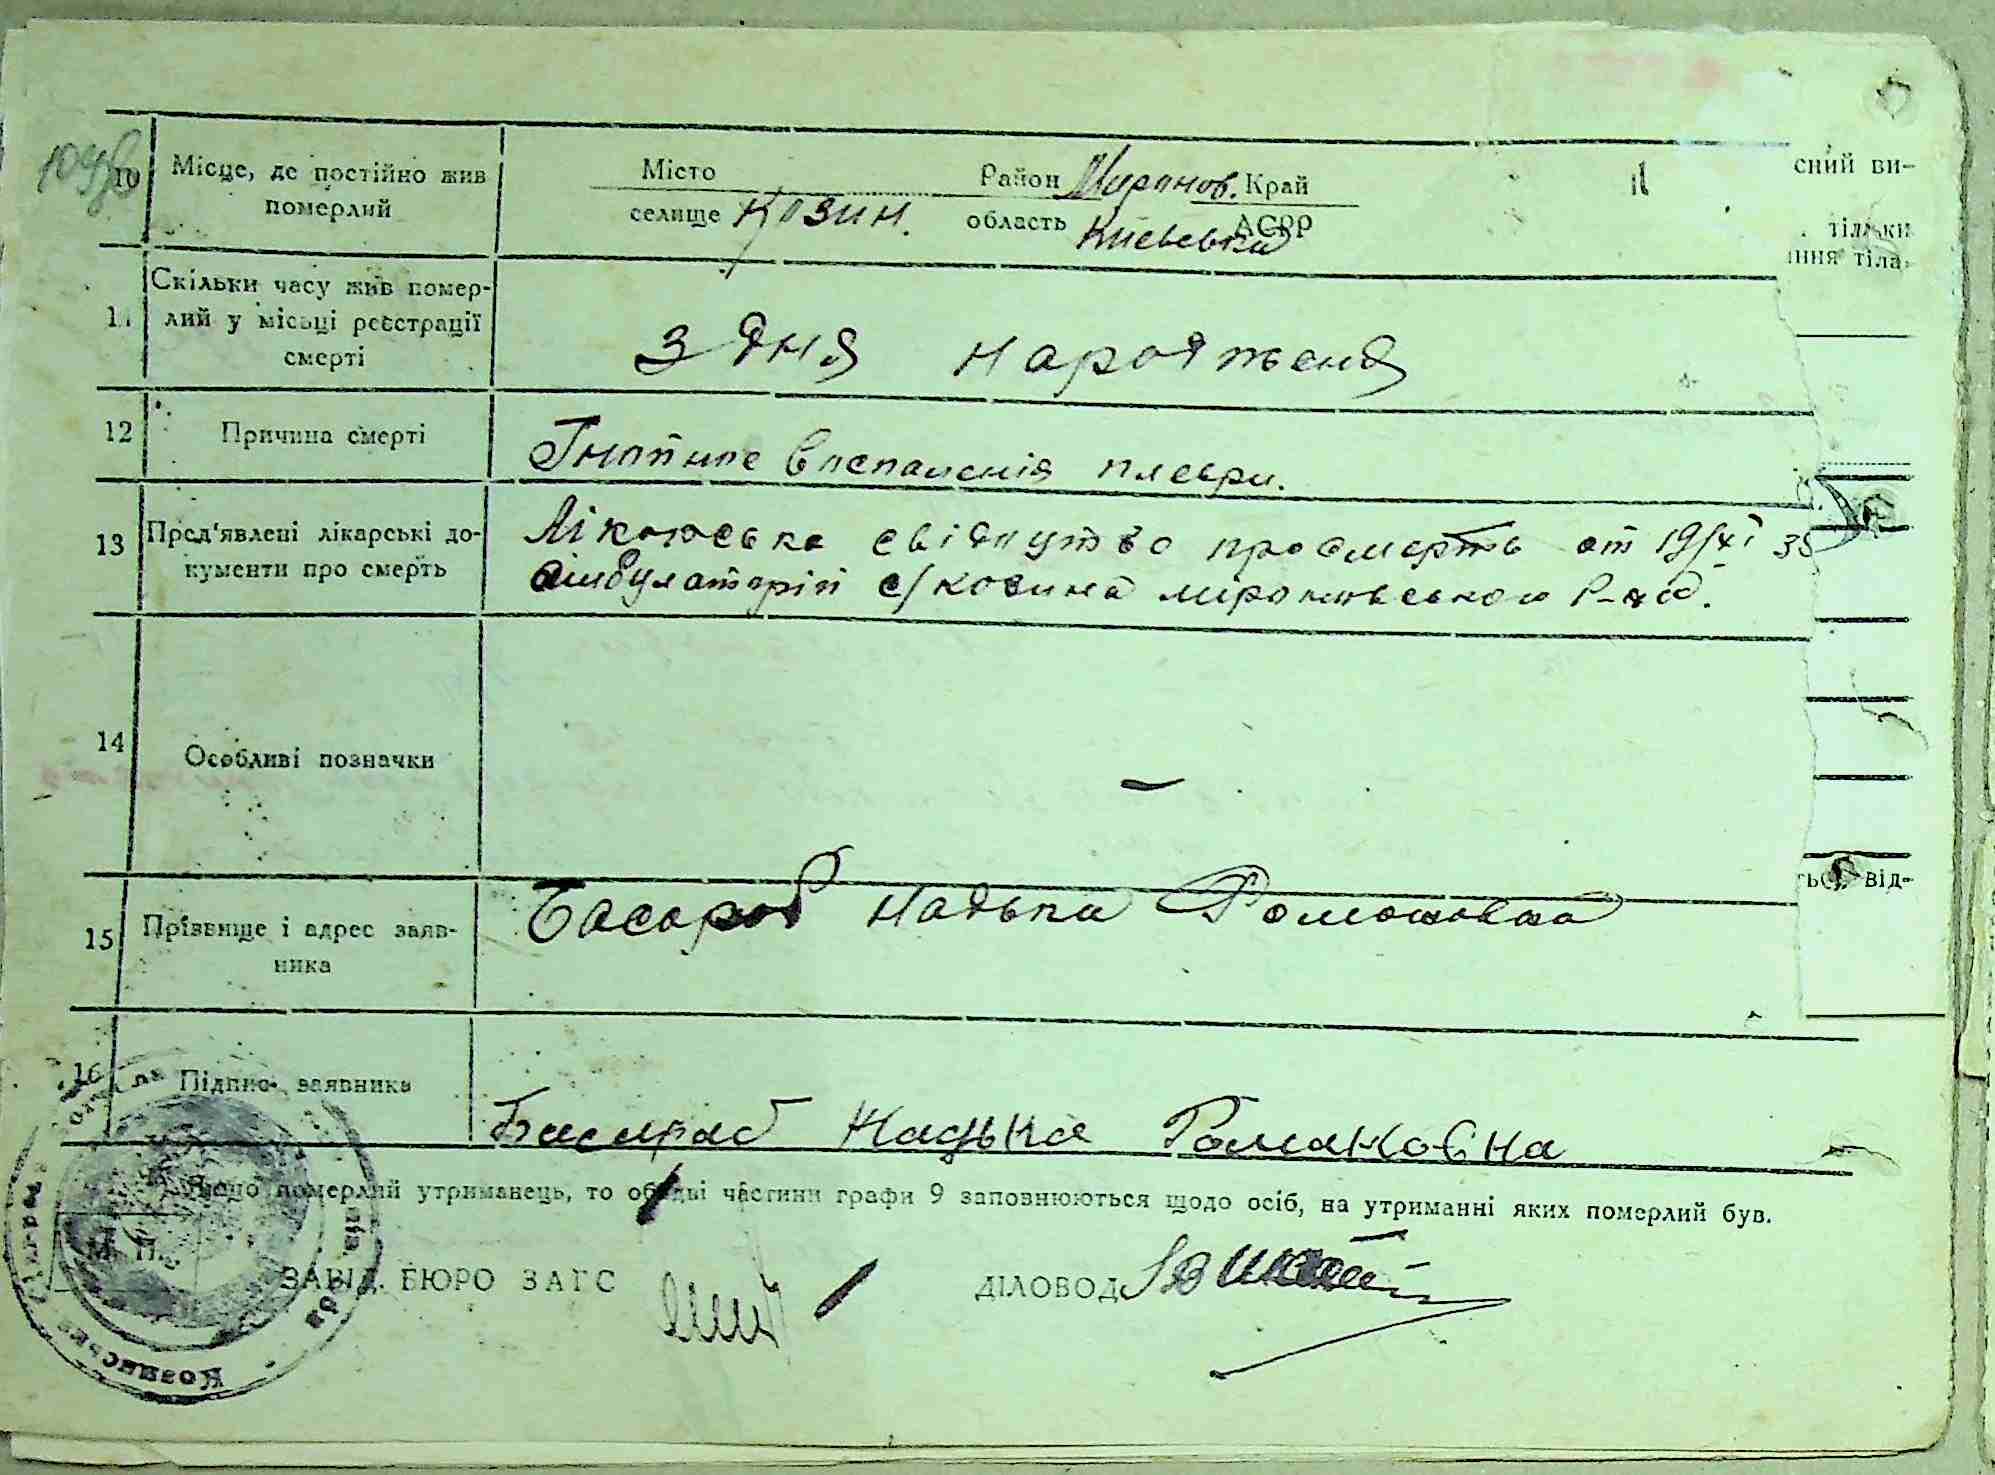 10 Місце, де постійно жив Місто Район Миронов. Край
померлий селище Козин. область Київська АСРР
Скільки часу жив помер-
11 лий у місьці реєстрації З дня народження
смерті
12 Причина смерті Гнойное воспаленія плеври.
13 Пред'явлені лікарські до- Лікарське свідоцтво про смерть от 19/XI 35
кументи про смерть амбулаторії с/козина міронивського р-на.
14 Особливі позначки –
15 Прізвище і адрес заяв- Басараб Надька Романовна
ника
16 Підпис заявника Басараб Надька Романовна
Якщо померлий утриманець, то обидві частини графи 9 заповнюються щодо осіб, на утриманні яких померлий був.
М. П.
ЗАВІД. БЮРО ЗАГС ДІЛОВОД
Козинська
сний ви-
тільки
ння тіла.
від-